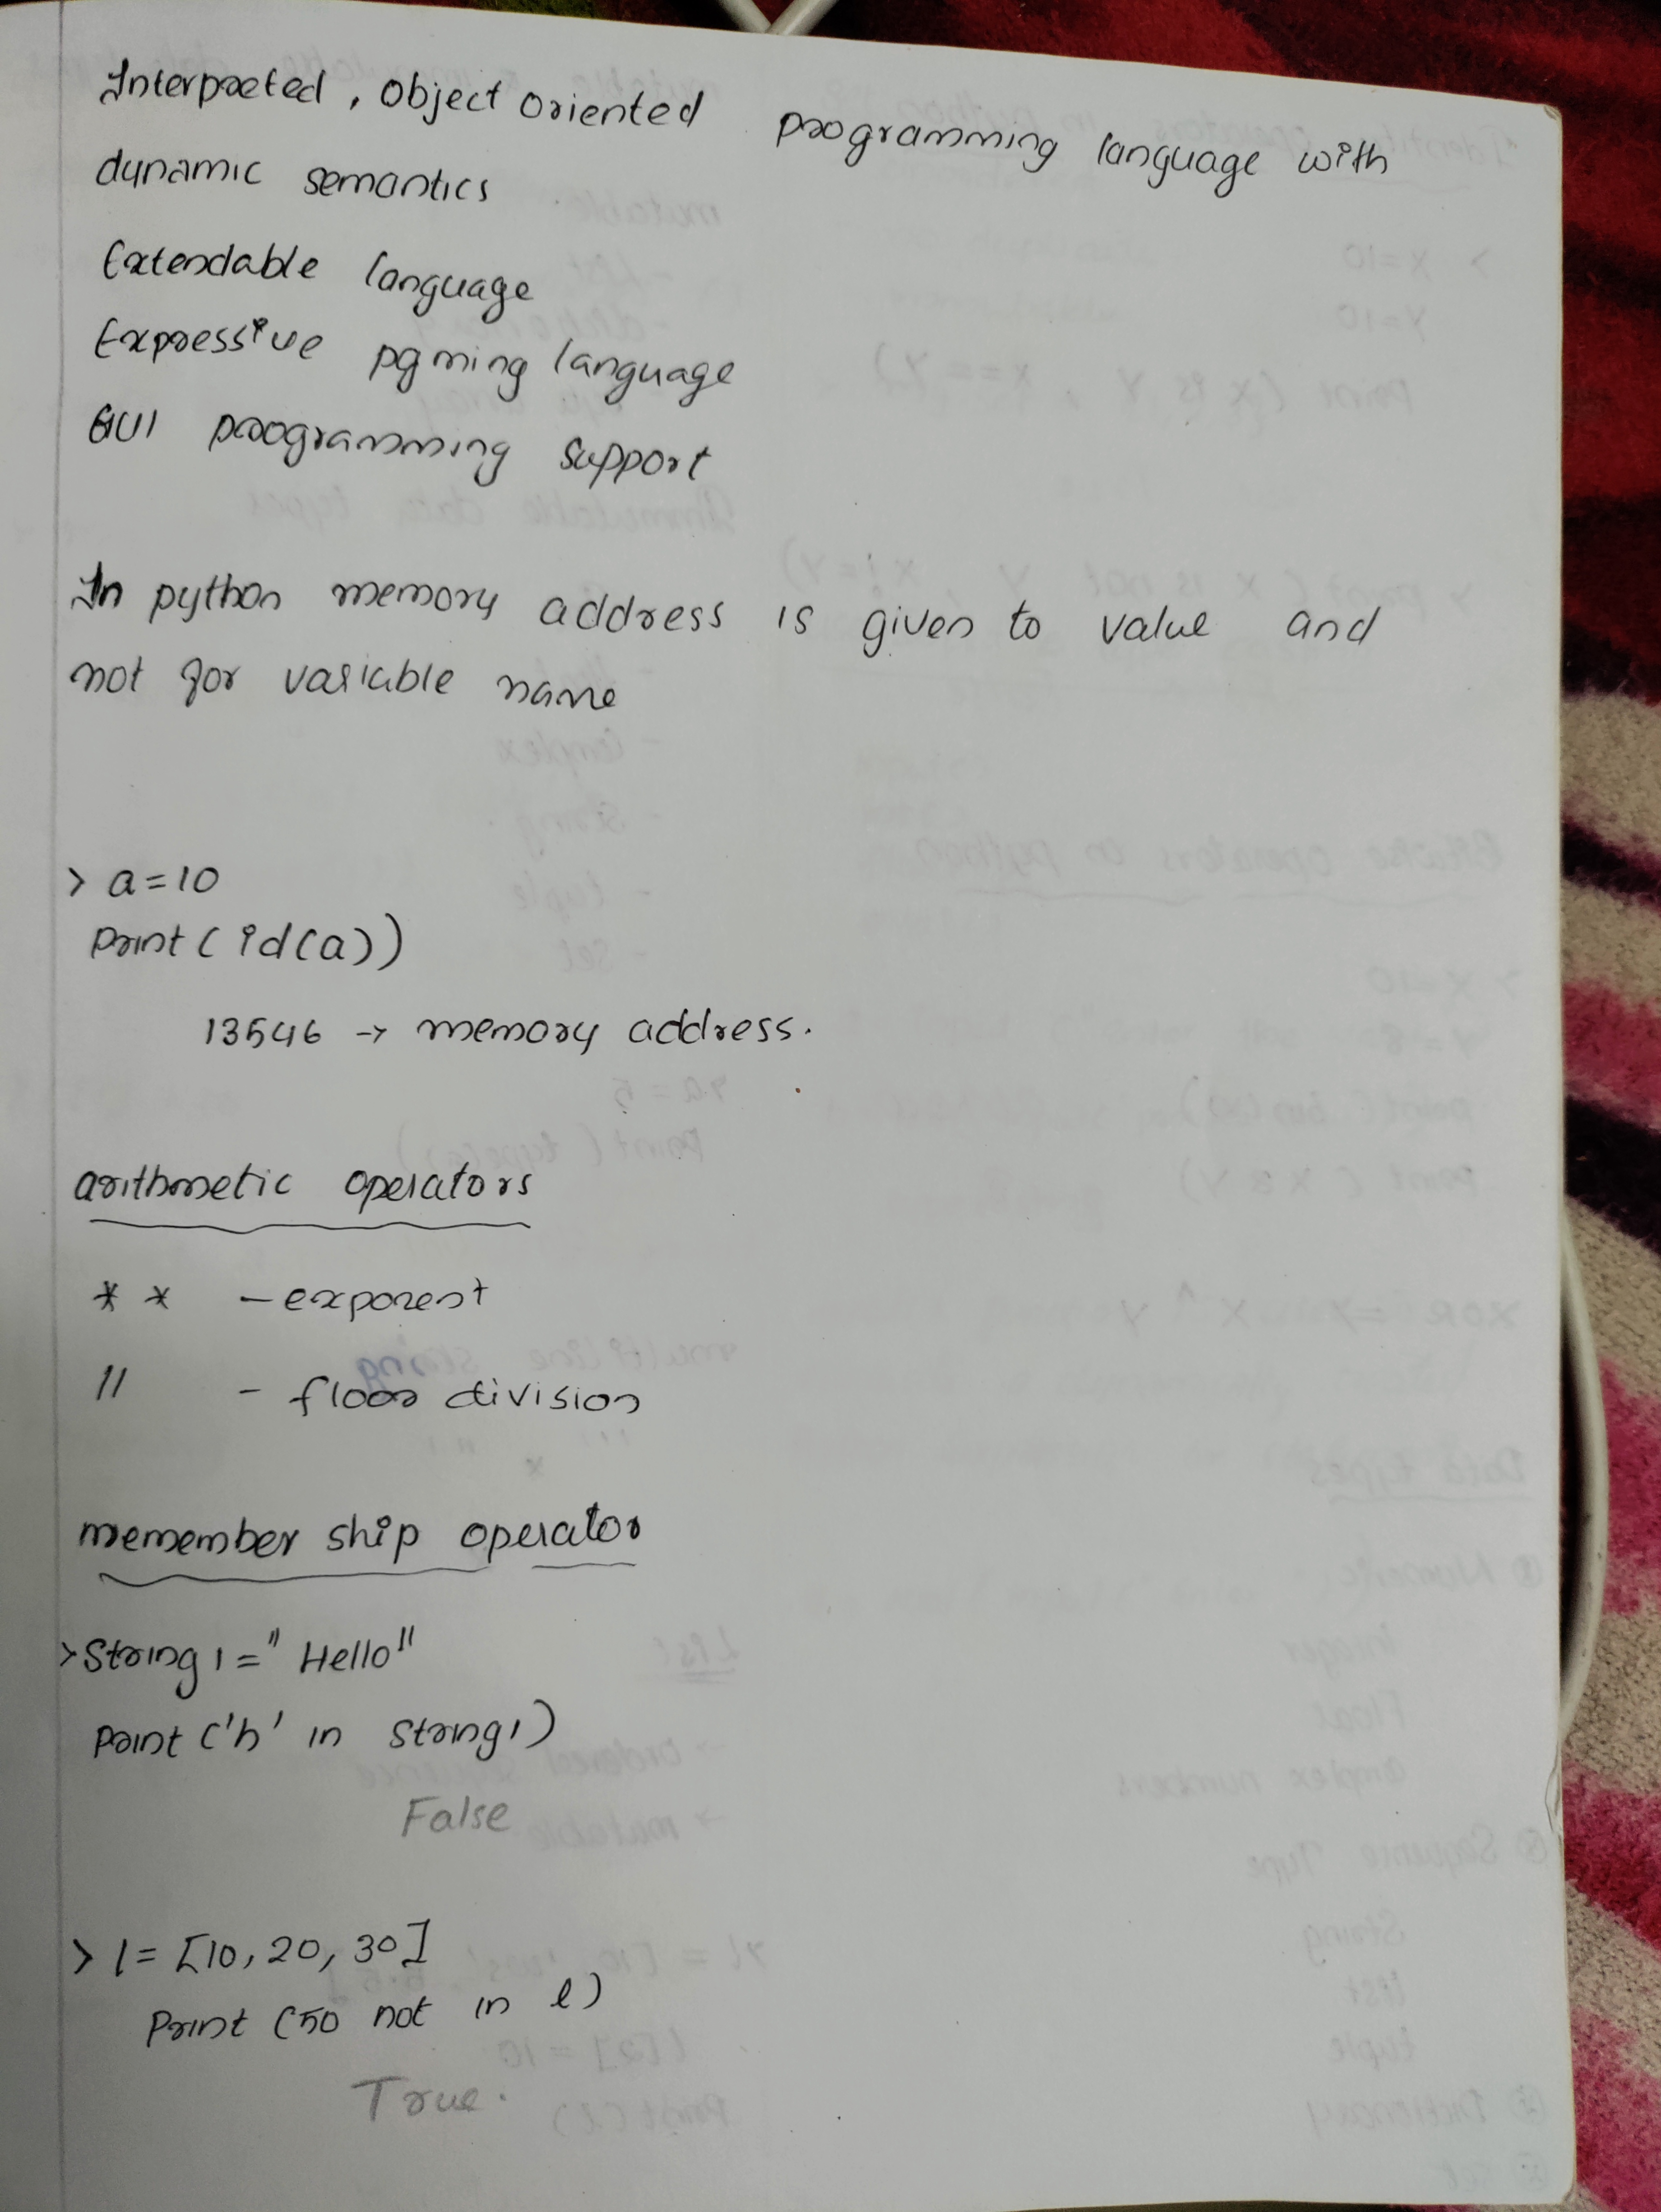 Interpreted, Object Oriented programming language with
dynamic semantics
Extendable language
Expressive pgming language
GUI programming support
In python memory address is given to value and
not for variable name
> a=10
print(id(a))
13546 → memory address.
arithmetic operators
** - exponent
// - floor division
memember ship operator
> String1 = "Hello"
print('h' in string1)
False
> l = [10, 20, 30]
print (50 not in l)
True.